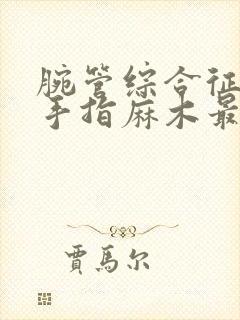 腕管综合征
手指麻木最
賈馬尔